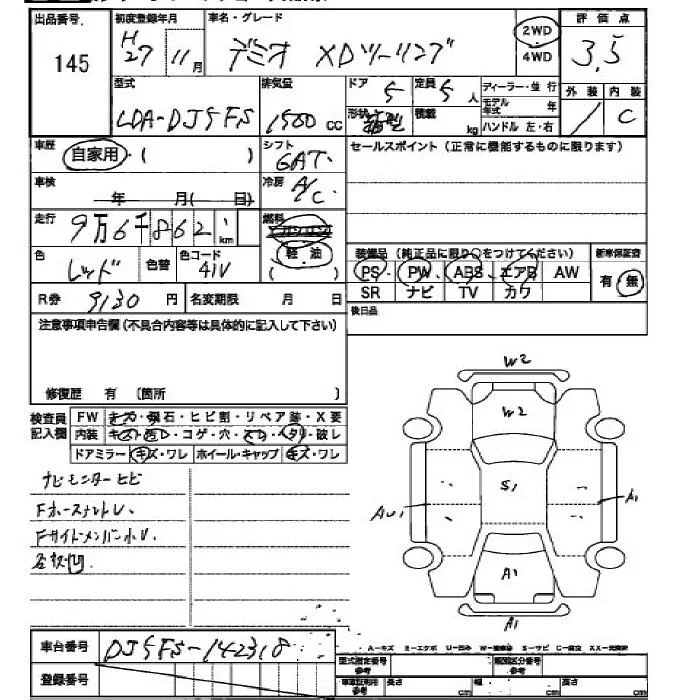 出品番号. 初度登録年月 車名・グレード 2WD 4WD 評価点
145 H27 11月 デミオ XDツーリング 3.5
型式 排気量 ドア 5 定員 5人 ディーラー・並行 外装 内装
LDA-DJ5FS 1500cc 形状 箱型 積載 kg モデル年式 年 ハンドル 左・右 / C
車歴 自家用・( ) シフト 6AT セールスポイント(正常に機能するものに限ります)
車検 年 月( 日) 冷房 A/C
走行 9万6千862km 燃料
色 レッド 色替 色コード 41V (軽油) 装備品(純正品に限り○をつけてください) 新車保証書
PS PW ABS エアB AW 有・無
SR ナビ TV カワ
R券 9130円 名変期限 月 日 後日品
注意事項申告欄(不具合内容等は具体的に記入して下さい)
修復歴 有 〔箇所 〕
検査員記入欄 FW キズ・飛石・ヒビ割・リペア跡・X要
内装 キズ・汚レ・コゲ・穴・スレ・ヘタリ・破レ
ドアミラー キズ・ワレ ホイール・キャップ キズ・ワレ
ナビモニターヒビ
FホースメントU.
Fサイドメンバー小U.
各狭凹
W2
W2
S1
AU1
A1
A1
A1
車台番号 DJ5FS-142318
登録番号
A-キズ E-エクボ U-凹み W-補修跡 S-サビ C-腐食 XX-交換済
型式指定番号 参考 類別区分番号 参考
車庫証明用 参考 長さ cm 幅 cm 高さ cm